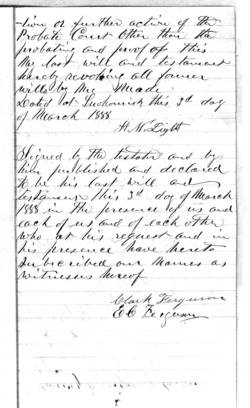 tion or further action of the
Probate Court other than the
probating and proof of this
My last will and testament
hereby revoking all former
wills by Me Made.
Dated at Snohomish this 3d day
of March 1888
H. W. Light
Signed by the testator and by
him published and declared
to be his last will and
testament this 3d day of March
1888 in the presence of us and
each of us and of each other
who at his request and in
his presence have hereto
subscribed our names as
witnesses hereof
Clark Ferguson
E C Ferguson